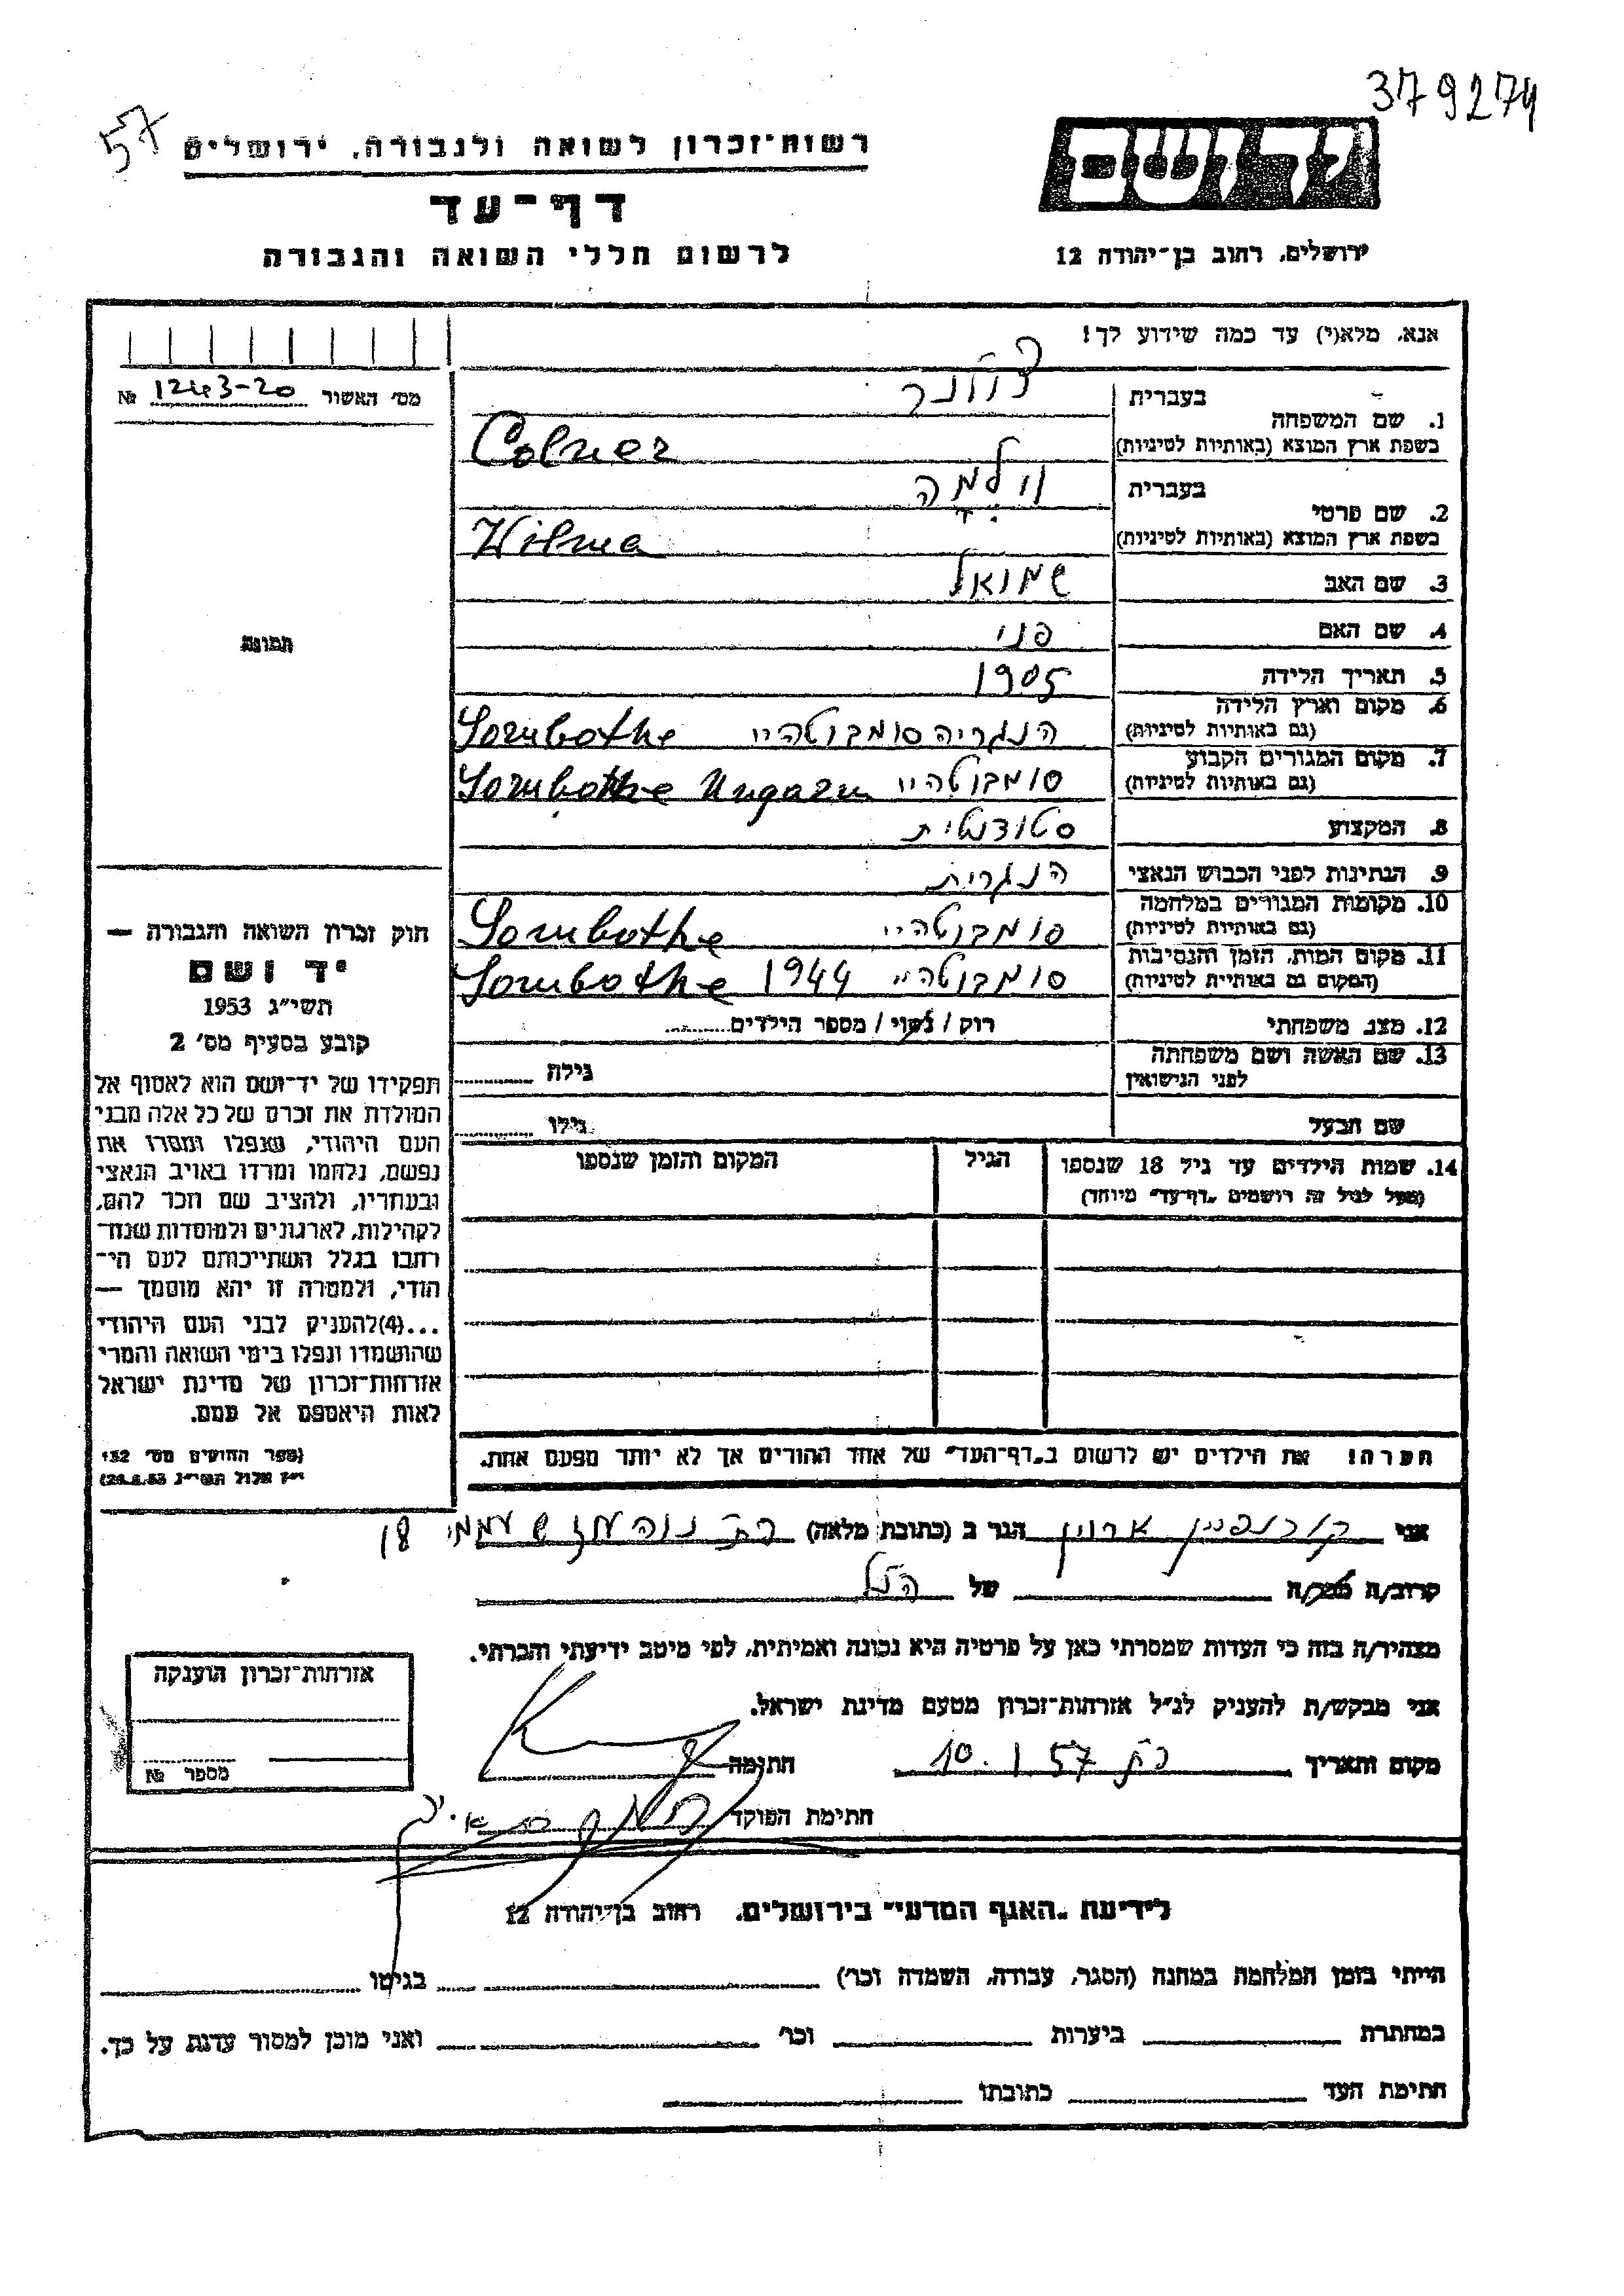 379274
57
רשות-זכרון לשואה ולגבורה, ירושלים
דף-עד
לרשום חללי השואה והגבורה
יד ושם
ירושלים, רחוב בן-יהודה 12
אנא, מלא(י) עד כמה שידוע לך!
מס' האשור 1243-20 №
1. שם המשפחה
בעברית
בשפת ארץ המוצא (באותיות לטיניות) Colner
2. שם פרטי
בעברית וילמה
בשפת ארץ המוצא (באותיות לטיניות) Wilma
3. שם האב שמואל
4. שם האם פני
5. תאריך הלידה 1905
6. מקום וארץ הלידה (גם באותיות לטיניות) הנגריה סומבוטהיי Sombothe
7. מקום המגורים הקבוע (גם באותיות לטיניות) סומבוטהיי Sombothe Ungarn
8. המקצוע סטודנטית
9. הנתינות לפני הכבוש הנאצי הנגרית
10. מקומות המגורים במלחמה (גם באותיות לטיניות) סומבוטהיי Sombothe
11. מקום המות, הזמן והנסיבות (המקום גם באותיית לטיניות) סומבוטהיי 1944 Sombothe
12. מצב משפחתי רוק / נשוי / מספר הילדים
13. שם האשה ושם משפחתה לפני הנישואין גילה
שם הבעל גילו
14. שמות הילדים עד גיל 18 שנספו
(מעל לגיל זה רושמים "דף-עד" מיוחד)
הגיל
המקום והזמן שנספו
הערה! את הילדים יש לרשום ב"דף-העד" של אחד ההורים אך לא יותר מפעם אחת.
תמונה
חוק זכרון השואה והגבורה —
יד ושם
תשי"ג 1953
קובע בסעיף מס' 2
תפקידו של יד-ושם הוא לאסוף אל
המולדת את זכרם של כל אלה מבני
העם היהודי, שנפלו ומסרו את
נפשם, נלחמו ומרדו באויב הנאצי
ובעוזריו, ולהציב שם וזכר להם,
לקהילות, לארגונים ולמוסדות שנח-
רבו בגלל השתייכותם לעם הי-
הודי, ולמטרה זו יהא מוסמך —
...(4)להעניק לבני העם היהודי
שהושמדו ונפלו בימי השואה והמרי
אזרחות-זכרון של מדינת ישראל
לאות היאספם אל עמם.
(ספר החוקים מס' 132
י"ז אלול תשי"ג 28.8.53)
אני ארוין הגר ב (כתובת מלאה)
קרוב/ה מכר/ה של הנ"ל
מצהיר/ה בזה כי העדות שמסרתי כאן על פרטיה היא נכונה ואמיתית, לפי מיטב ידיעתי והכרתי.
אני מבקש/ת להעניק לנ"ל אזרחות-זכרון מטעם מדינת ישראל.
מקום ותאריך 10. I 57 חתימה
חתימת הפוקד
אזרחות-זכרון הוענקה
מספר №
לידיעת "האגף המדעי" בירושלים, רחוב בן-יהודה 12
הייתי בזמן המלחמה במחנה (הסגר, עבודה, השמדה וכו') בגיטו
במחתרת ביערות וכו' ואני מוכן למסור עדות על כך.
חתימת העד כתובתו